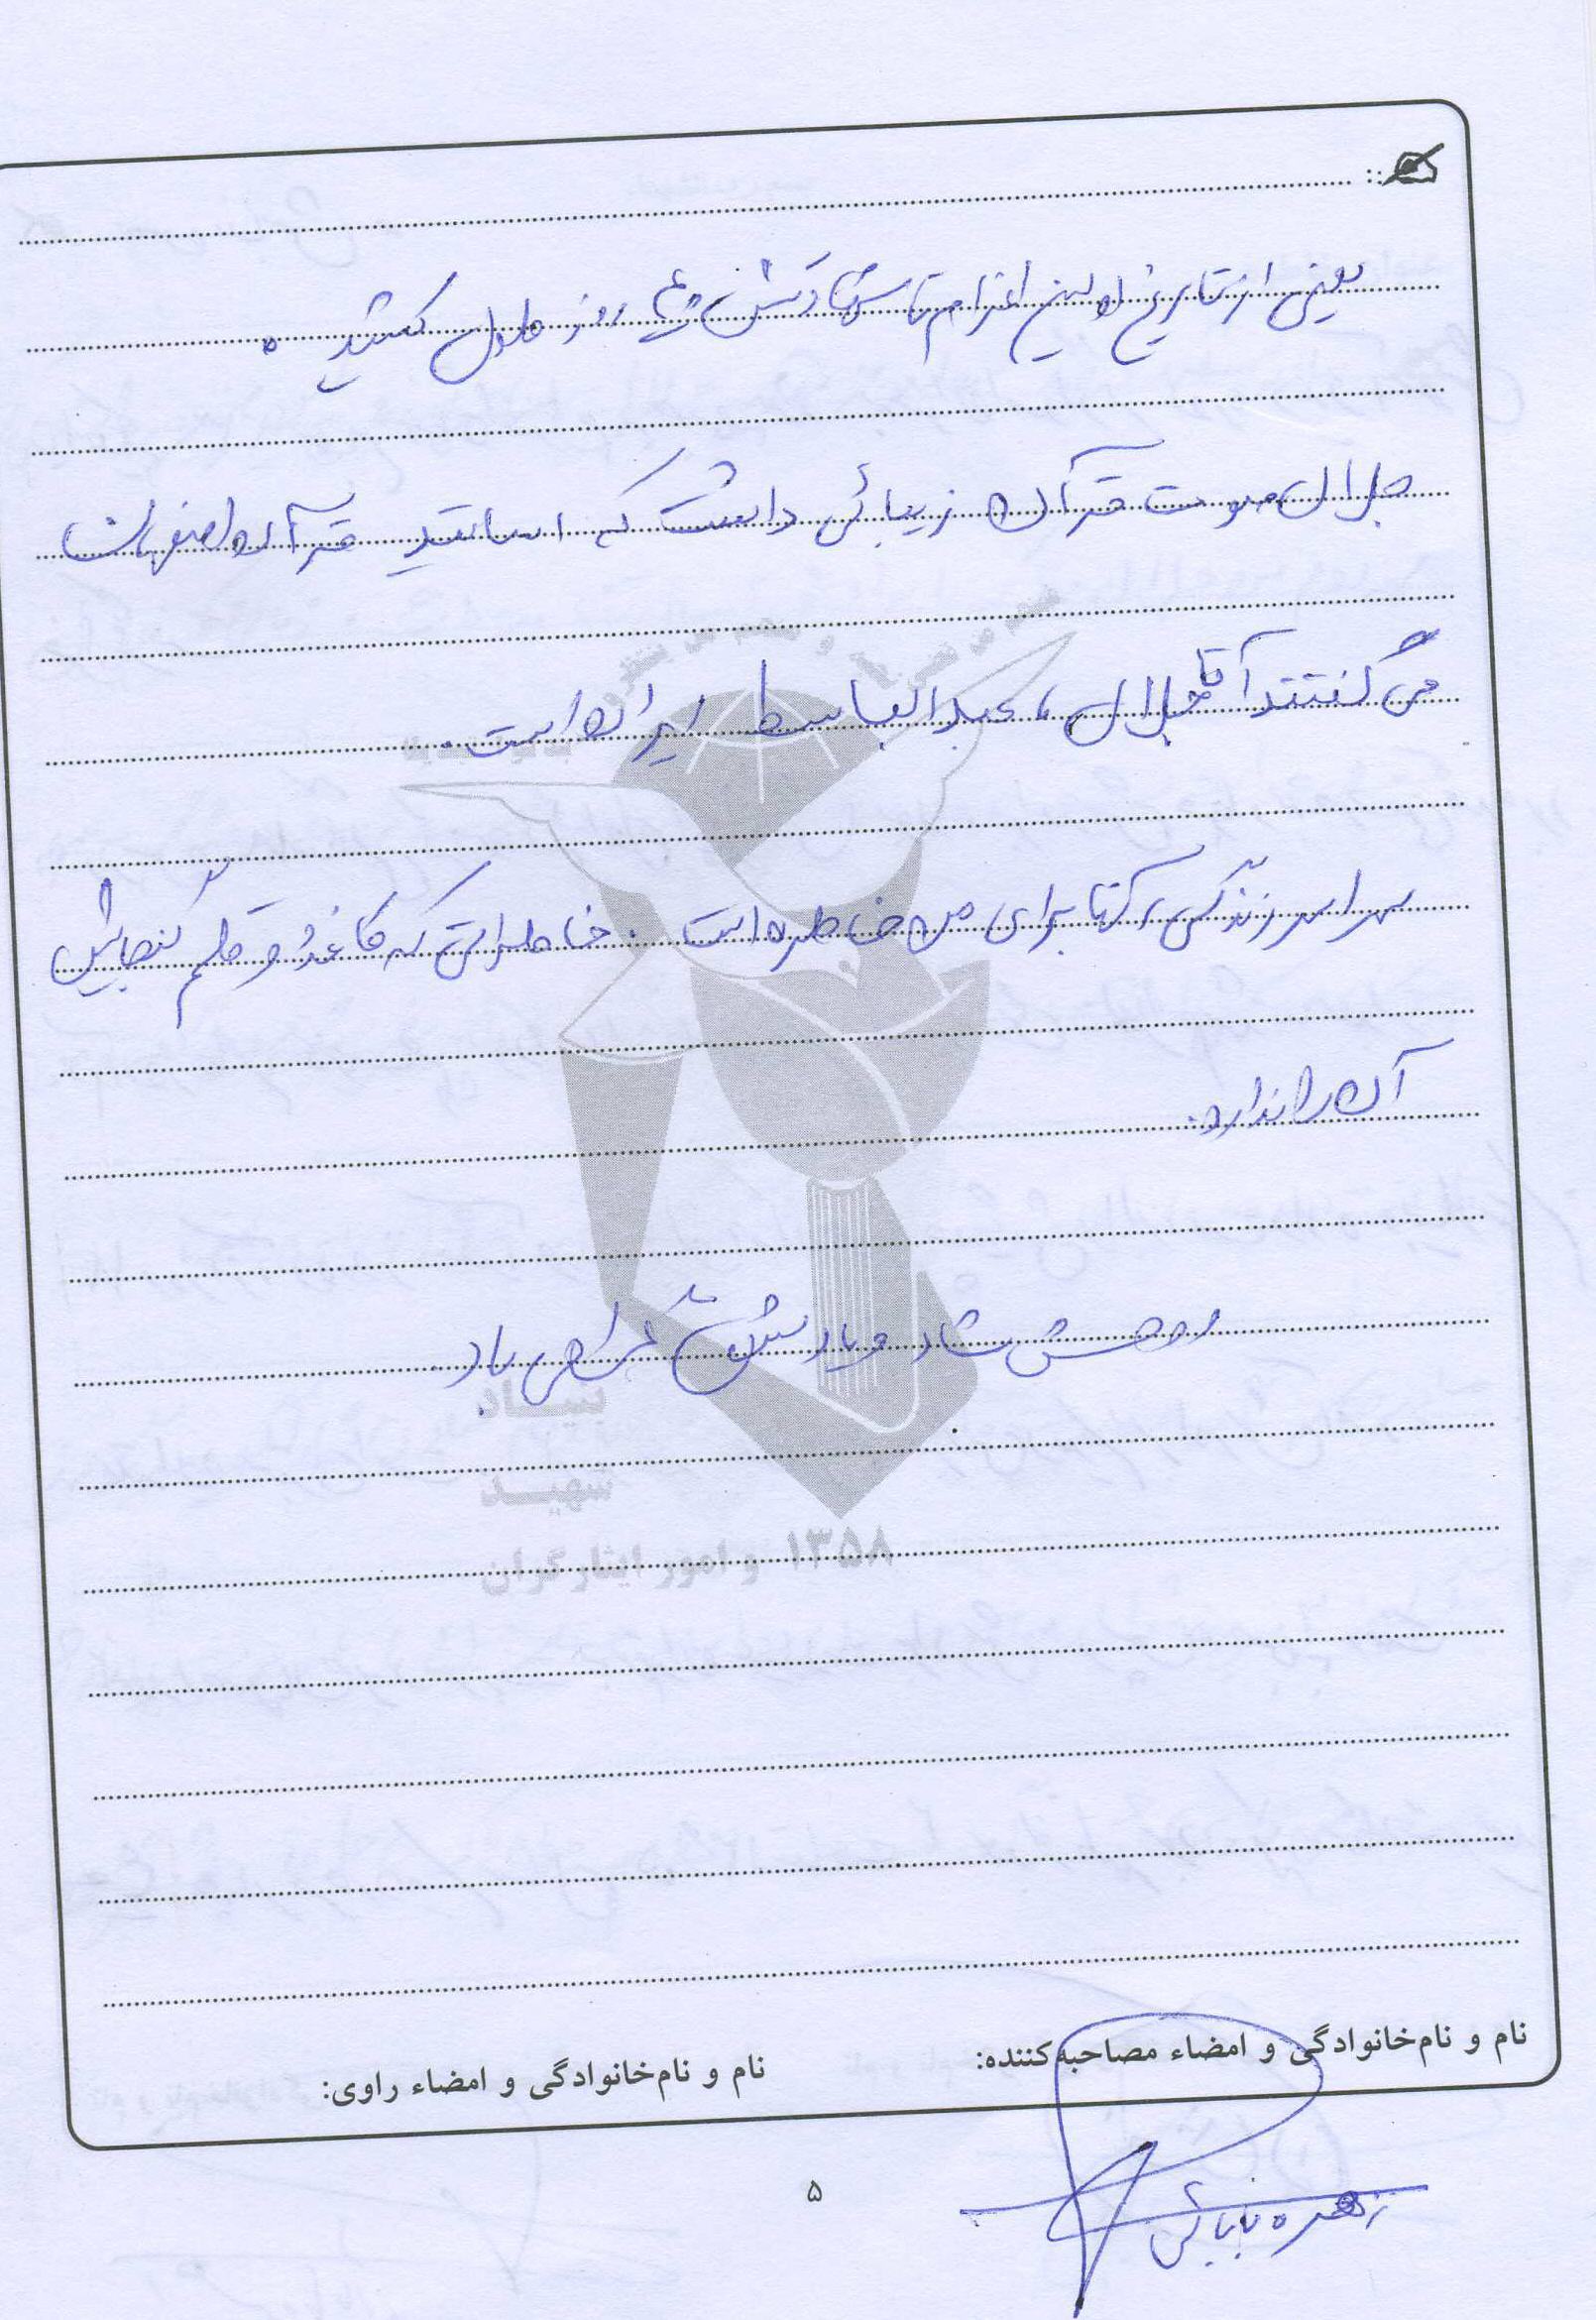 یعنی از تاریخ اولین اعزام تا شهادتش روز طول کشید.
جلال صوت قرآن زیبائی داشت که اساتید قرآن اصفهان
می گفتند آقا جلال، عبدالباسط ایران است.
سراسر زندگی برای من خاطره است. خاطراتی که کاغذ و قلم گنجایش
آن را ندارد.
روحش شاد و یادش گرامی باد.
بنیاد
شهید
و امور ایثارگران ۱۳۵۸
نام و نام‌خانوادگی و امضاء مصاحبه‌کننده:
نام و نام‌خانوادگی و امضاء راوی:
زهره بابائی
۵